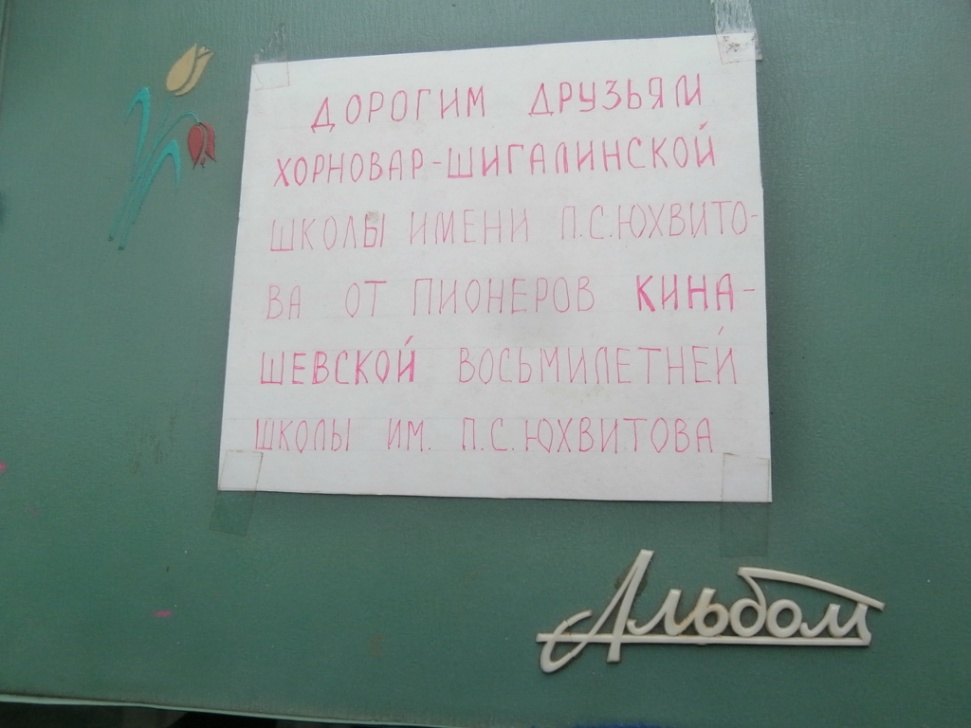 ДОРОГИМ ДРУЗЬЯМ
ХОРНОВАР-ШИГАЛИНСКОЙ
ШКОЛЫ ИМЕНИ П.С.ЮХВИТО-
ВА ОТ ПИОНЕРОВ КИНА-
ШЕВСКОЙ ВОСЬМИЛЕТНЕЙ
ШКОЛЫ ИМ. П.С.ЮХВИТОВА
Альбом